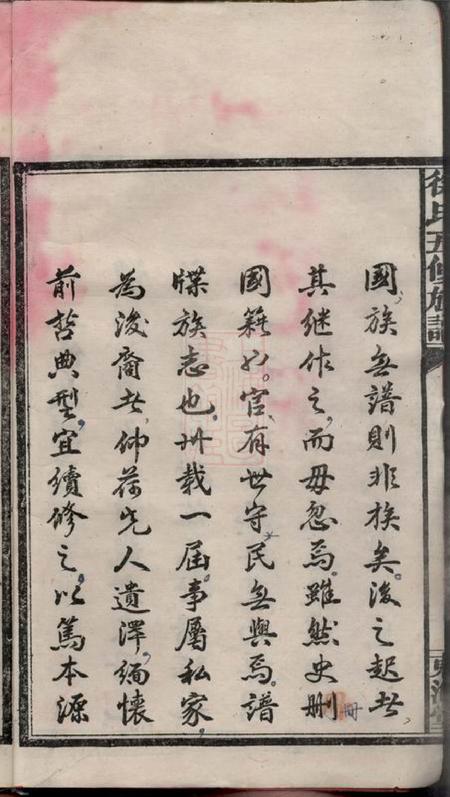 徐氏五修族譜
國族無譜則非族矣。後之起者，
其继作之，而毋忽焉。雖然史刪
冊
國籍，乃官有世守，民無與焉。譜
牒族志也。卅载一屆。事屬私家，
為後裔者，仰荷先人遺澤，緬懷
前哲典型，宜續修之，以篤本源
東海堂